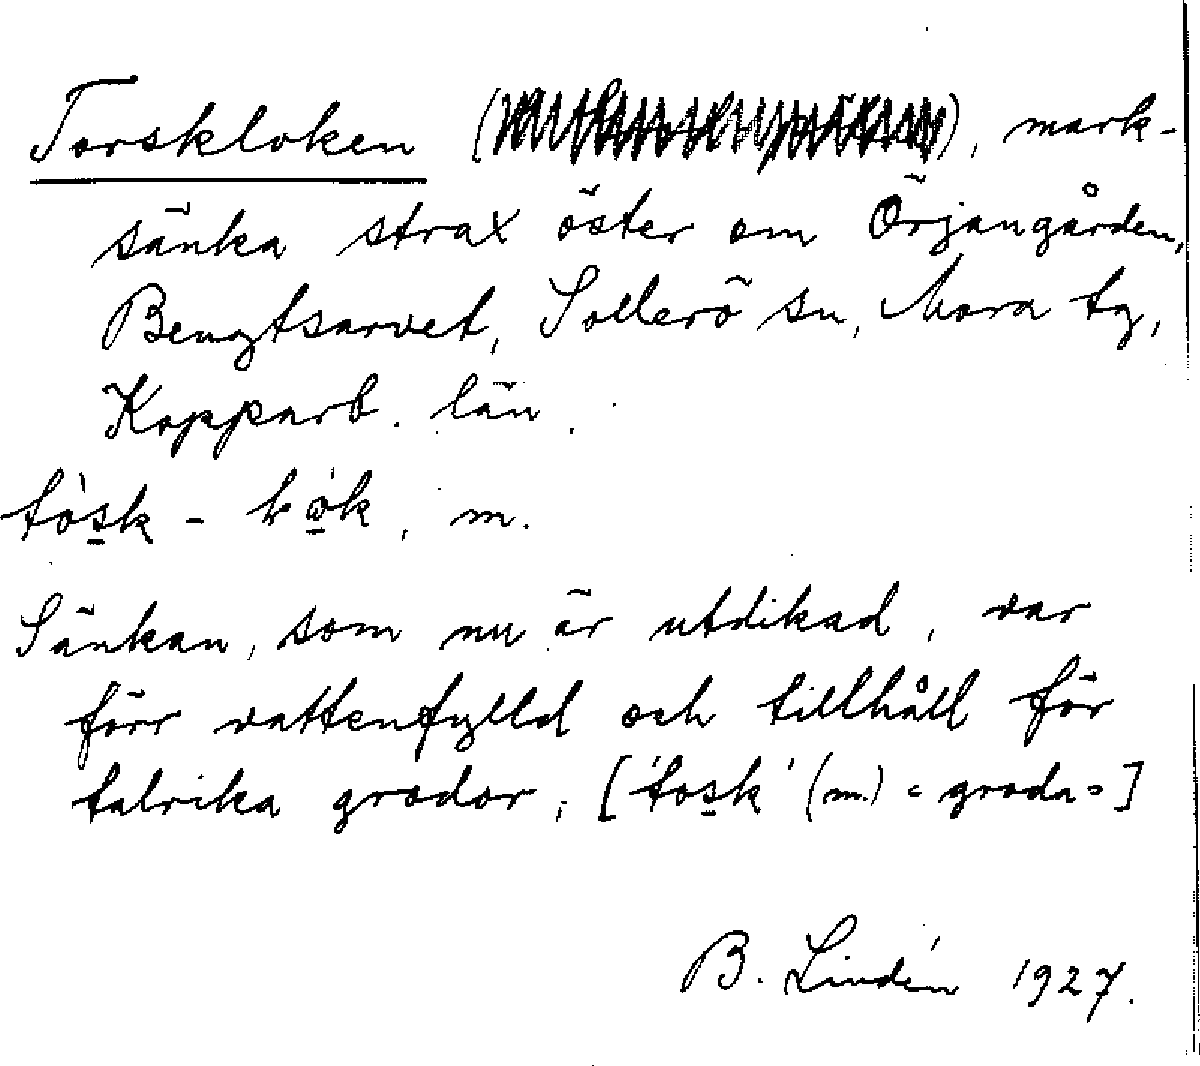 Torskloken (), mark-
sänka strax öster om Örjangården,
Bengtsarvet, Sollerö sn, Mora tg,
Kopparb. län.
m.
Sänkan, som nu är utdikad, var
förr vattenfylld och tillhåll för
talrika grodor, ['tosk' (m.) = groda =]
B. Lindén 1927.